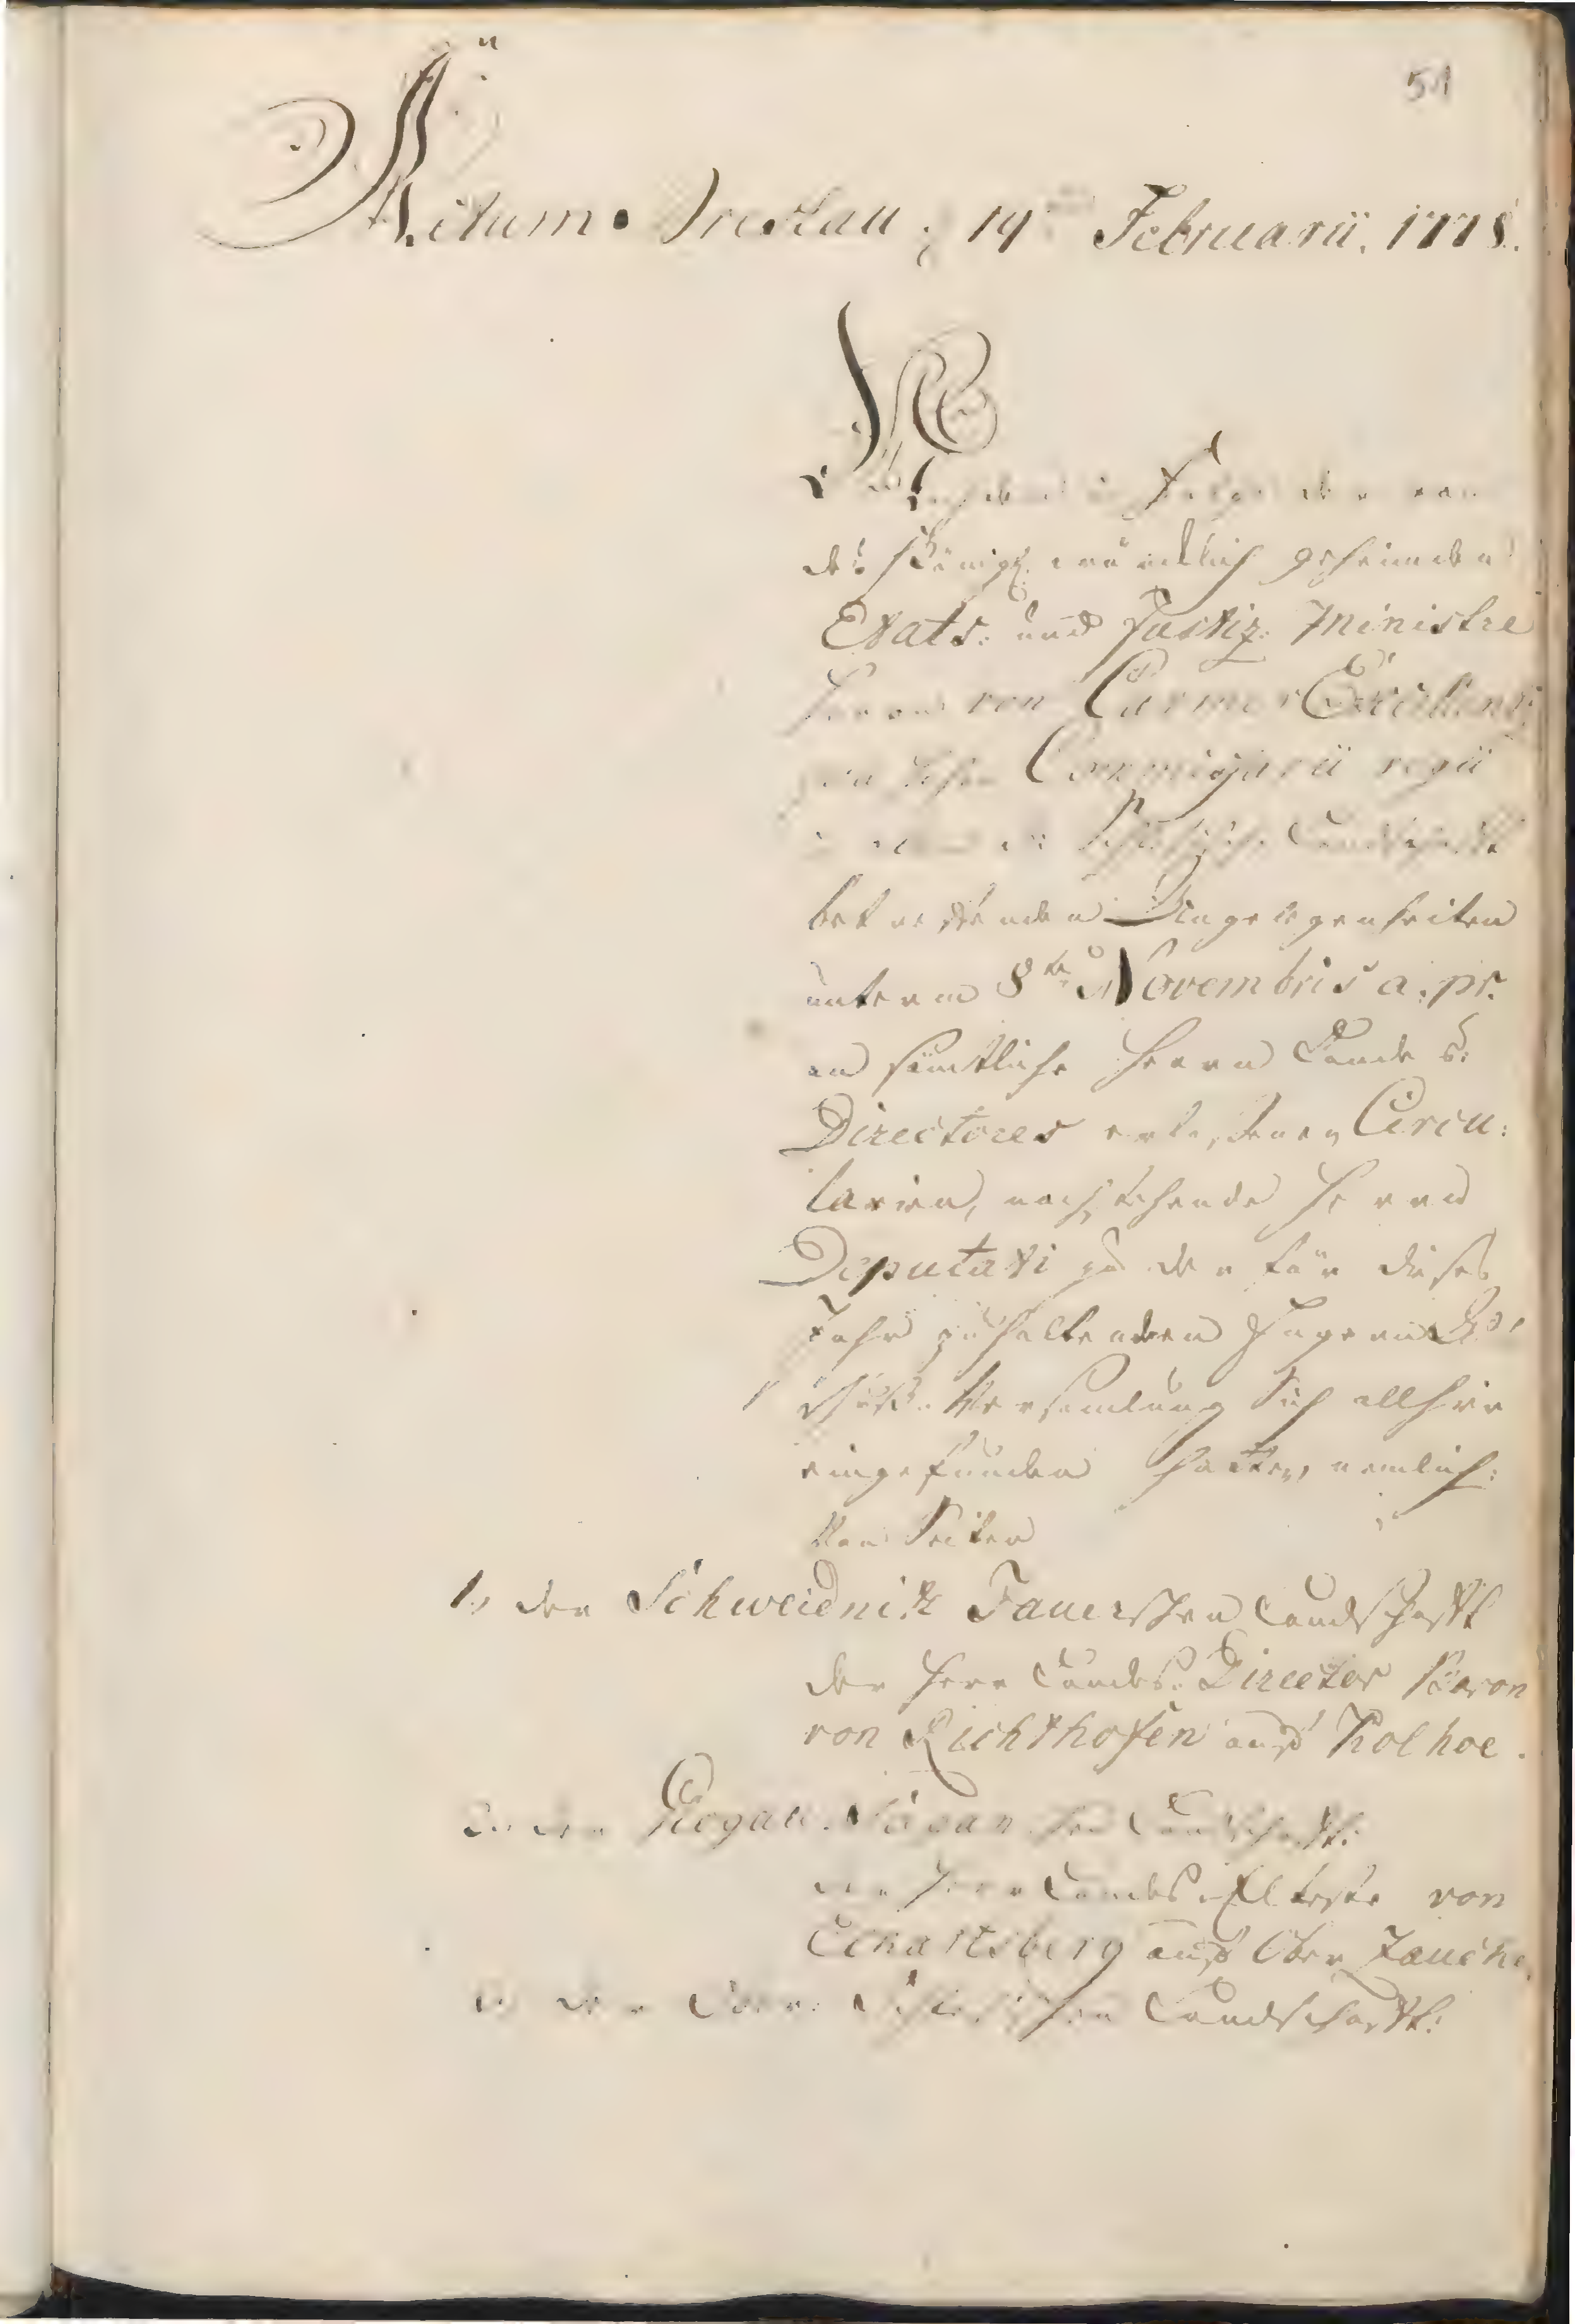 51
Actum Breslau, 19 Februarii. 1778.
Nachdem in Folge der von
des Königl. würcklich geheimden
Etats: und Justiz: Ministre
Herrn von Carmer Excellenz,
Commissarii regii
in denen die Schlesische Landschafft
betreffenden Angelegenheiten
unterm 8ten Novembris a. pr.
an sämtliche Herrn Landes:
Directores erlassenen Circu:
larien, nachstehende Herrn
Deputati zu der für dieses
Jahr zuhaltenden Engern
Versamlung sich allhier
eingefunden hatten, nemlich:
Von Seiten
1, der Schweidnitz Jauerschen Landschafft
der Herr Landes: Director Baron
von Richthofen auß Kolhoe.
der Glogau. Sagan schen Landschafft:
der Herr Landes Elteste von
Eckartsberg auß Ober Zauche,
der Ober Schlesischen Landschafft: